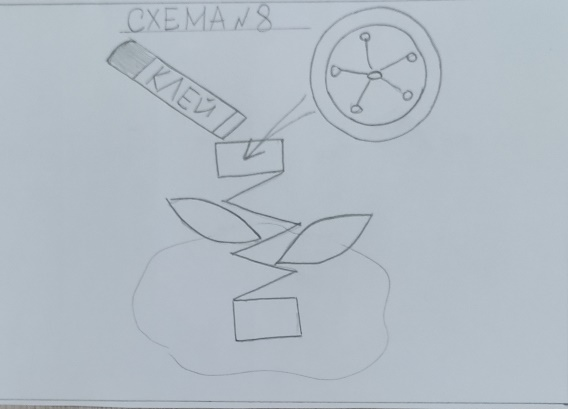 СХЕМА №8
КЛЕЙ